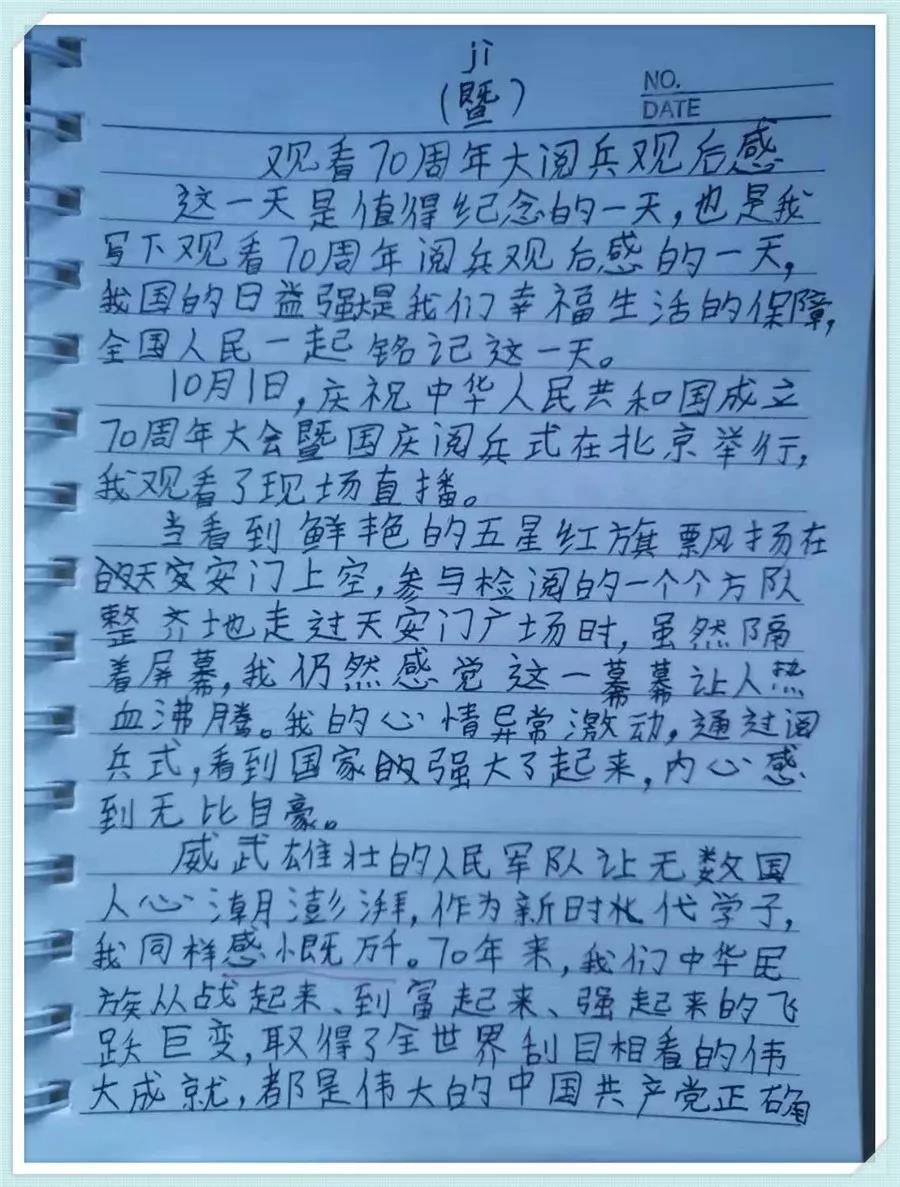 jì
(暨)
NO.
DATE
观看70周年大阅兵观后感
这一天是值得纪念的一天,也是我
写下观看70周年阅兵观后感的一天,
我国的日益强是我们幸福生活的保障,
全国人民一起铭记这一天。
10月1日,庆祝中华人民共和国成立
70周年大会暨国庆阅兵式在北京举行,
我观看了现场直播。
当看到鲜艳的五星红旗飘扬在
天安门上空,参与检阅的一个个方队
整齐地走过天安门广场时,虽然隔
着屏幕,我仍然感觉这一幕幕让人热
血沸腾。我的心情异常激动,通过阅
兵式,看到国家的强大了起来,内心感
到无比自豪。
威武雄壮的人民军队让无数国
人心潮澎湃,作为新时代学子,
我同样感慨万千。70年来,我们中华民
族从战起来、到富起来、强起来的飞
跃巨变,取得了全世界刮目相看的伟
大成就,都是伟大的中国共产党正确